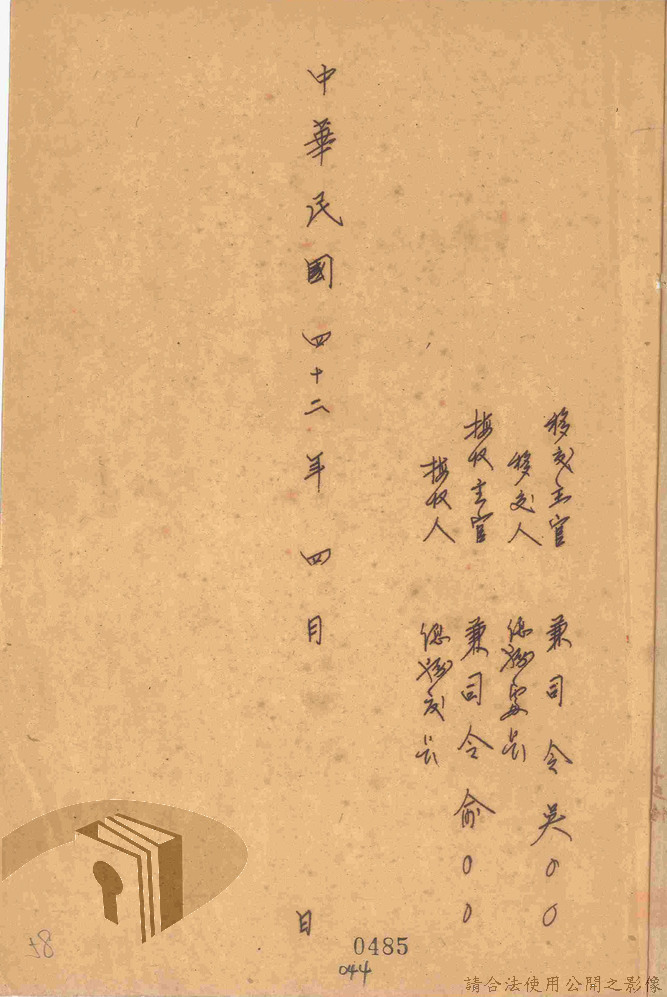 移交主官 兼司令 吳○○
移交人 總務處長
接收主官 兼司令 俞○○
接收人 總務處長
中華民國四十二年四月 日
0485
044
78
請合法使用公開之影像